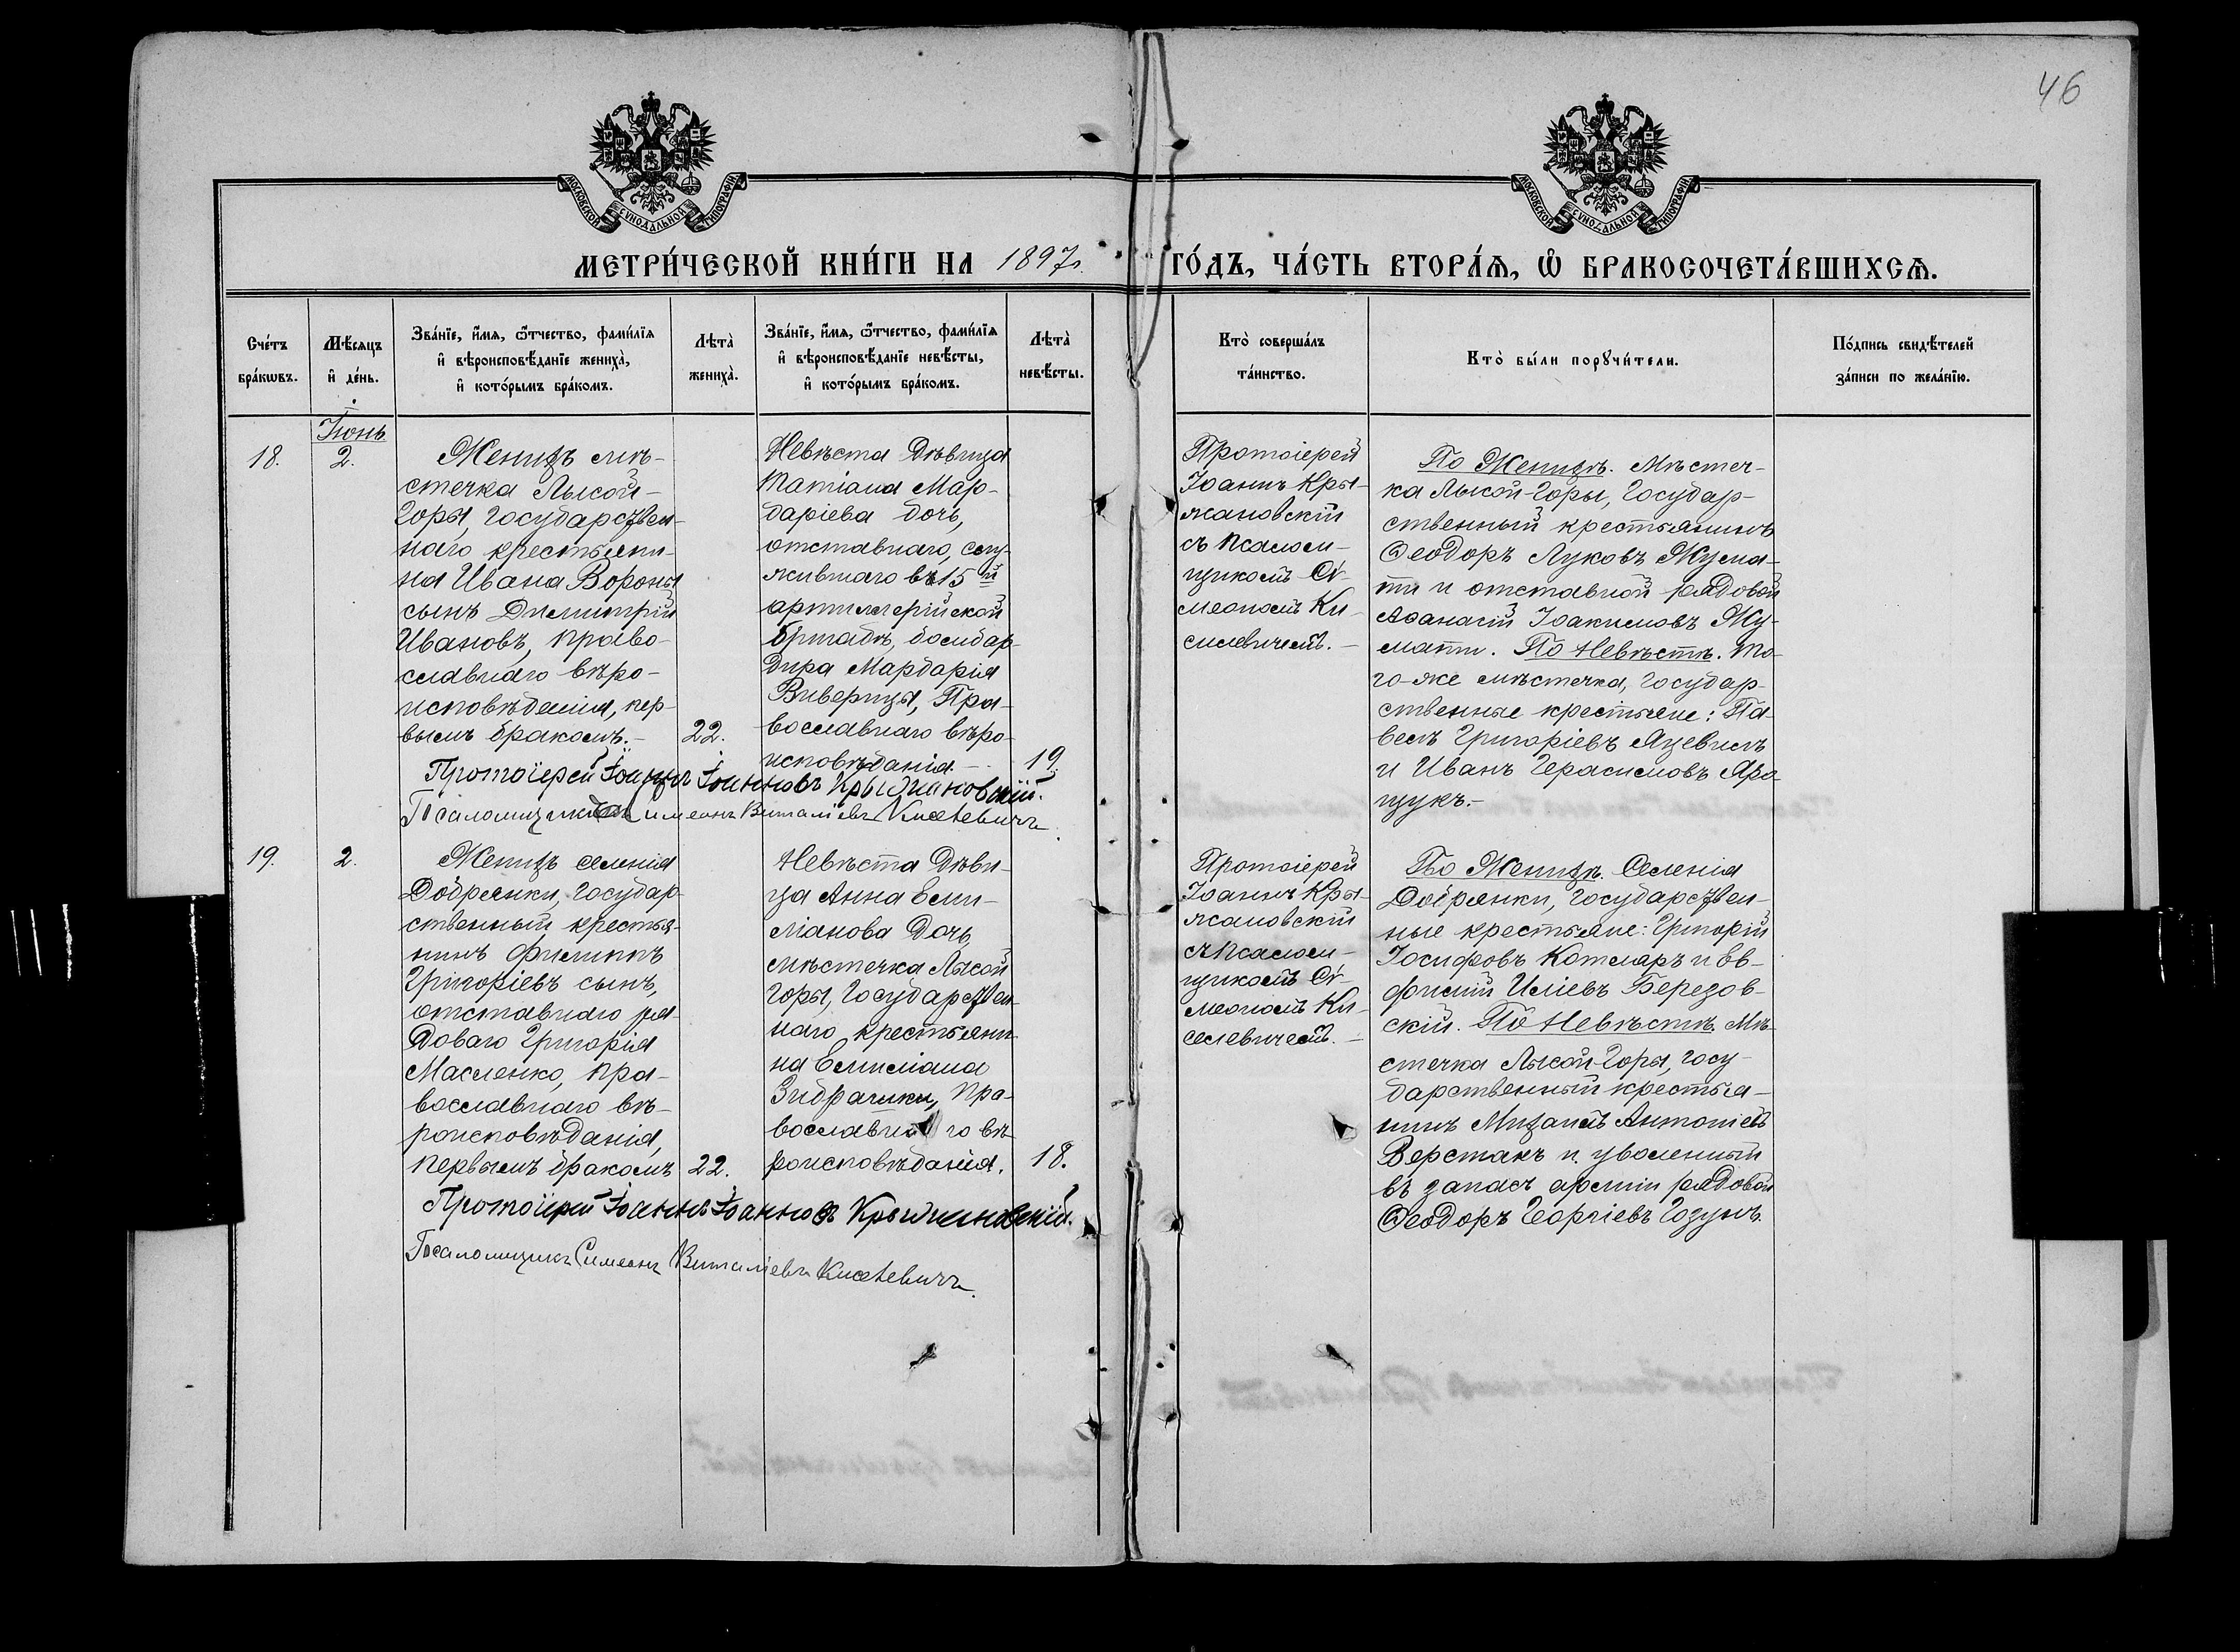 46
МОСКОВСКОЙ СѴНОДАЛЬНОЙ ТИПОГРАФІИ
МОСКОВСКОЙ СѴНОДАЛЬНОЙ ТИПОГРАФІИ
МЕТРИ́ЧЕСКОЙ КНИ́ГИ НА 1897 г.
ГО́ДЪ, ЧА́СТЬ ВТОРА́Ѧ, Ѽ БРАКОСОЧЕТА́ВШИХСѦ.
Сче́тъ
бра́кѡвъ.
Мѣ́сяцъ
и҆ де́нь.
Зва́нїе, и҆́мя, ѻ҆́тчество, фами́лїя
и҆ вѣроисповѣ́данїе жениха̀,
и҆ кото́рымъ бра́комъ.
Лѣта̀
жениха̀.
Зва́нїе, и҆́мя, ѻ҆́тчество, фами́лїя
и҆ вѣроисповѣ́данїе невѣ́сты,
и҆ кото́рымъ бра́комъ.
Лѣта̀
невѣ́сты.
Кто̀ соверша́лъ
та́инство.
Кто̀ бы́ли порꙋчи́тели.
По́дпись свидѣ́телей
за́писи по жела́нїю.
18.
Іюнь
2.
Женихъ мѣ-
стечка Лысой-
Горы, Государствен-
наго крестьяни-
на Ивана Вороны
сынъ Димитрій
Ивановъ, право-
славнаго вѣро-
исповѣденія, пер-
вымъ бракомъ.-
22.
Невѣста Дѣвица
Татіана Мар-
даріева дочь,
отставнаго, слу-
жившаго въ 15й
артиллерійской
бригадѣ, бомбар-
дира Мардарія
Виверицы, Пра-
вославнаго вѣро-
исповѣданія.-
19.
Протоіерей
Іоаннъ Кры-
жановскій
съ псалом-
щикомъ Сѵ-
меономъ Ки-
селевичемъ.-
По Женихѣ. Мѣстеч-
ка Лысой-Горы, Государ-
ственный крестьянинъ
Ѳеодоръ Луковъ Жума-
ти и отставной рядовой
Аѳанасій Іоакимовъ Жу-
мати. По Невѣстѣ. То-
го-же мѣстечка, Государ-
ственные крестьяне: Па-
велъ Григоріевъ Яцевилъ
и Иванъ Герасимовъ Яро-
щукъ.-
Протоіерей Іоаннъ Іоанновъ Крыжановскій.
Псаломщикъ Симеонъ Виталіевъ Киселевичъ
19.
2.
Женихъ селенія
Добрянки, Государ-
ственный крестья-
нинъ Филиппъ
Григоріевъ сынъ,
отставнаго ря-
доваго Григорія
Масленко, пра-
вославнаго вѣ-
роисповѣданія,
первымъ бракомъ
22.
Невѣста Дѣви-
ца Анна Еми-
ліанова Дочь,
мѣстечка Лысой
Горы, Государствен-
наго крестьяни-
на Емиліана
Зибрачки, Пра-
вославнаго вѣ-
роисповѣданія.
18.
Протоіерей
Іоаннъ Кры-
жановскій
съ псалом-
щикомъ Сѵ-
меономъ Ки-
селевичемъ.-
По Женихѣ. Селенія
Добрянки, Государствен-
ные крестьяне: Григорій
Іосифовъ Котляръ и Ев-
фимій Иліевъ Березов-
скій. По Невѣстѣ. Мѣ-
стечка Лысой-Горы, госу-
дарственный крестья-
нинъ Михаилъ Антоніевъ
Верстакъ и уволенный
въ запасъ арміи рядовой
Ѳеодоръ Георгіевъ Гозунъ.
Протоіерей Іоаннъ Іоанновъ Крыжановскій.
Псаломщикъ Симеонъ Виталіевъ Киселевичъ.